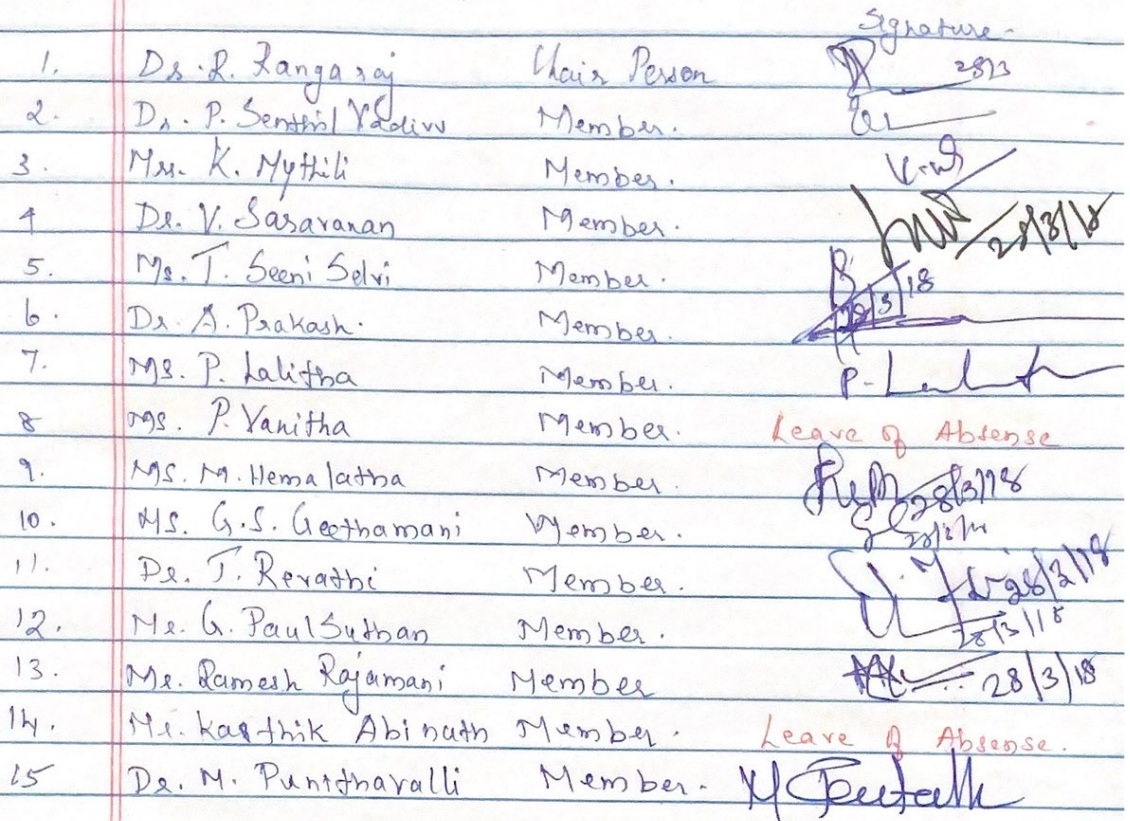 Signature-
1. Dr. R. Rangaraj Chair Person 28/3
2. Dr. P. Senthil Vadivu Member.
3. Mrs. K. Mythili Member.
4 Dr. V. Saravanan Member. 28/3/18
5. Ms. T. Seeni Selvi Member. 
6. Dr. A. Prakash. Member.
7. Ms. P. Lalitha Member. P-
8 Ms. P. Vanitha Member. Leave of Absense
9. Ms. M. Hemalatha Member. 28/3/18
10. Ms. G.S. Geethamani Member.
11. Dr. T. Revathi Member. 28/3/18
12. Mr. G. Paul Suthan Member. 28/3/18
13. Mr. Ramesh Rajamani Member 28/3/18
14. Mr. Karthik Abinath Member. Leave of Absense.
15 Dr. M. Punithavalli Member.